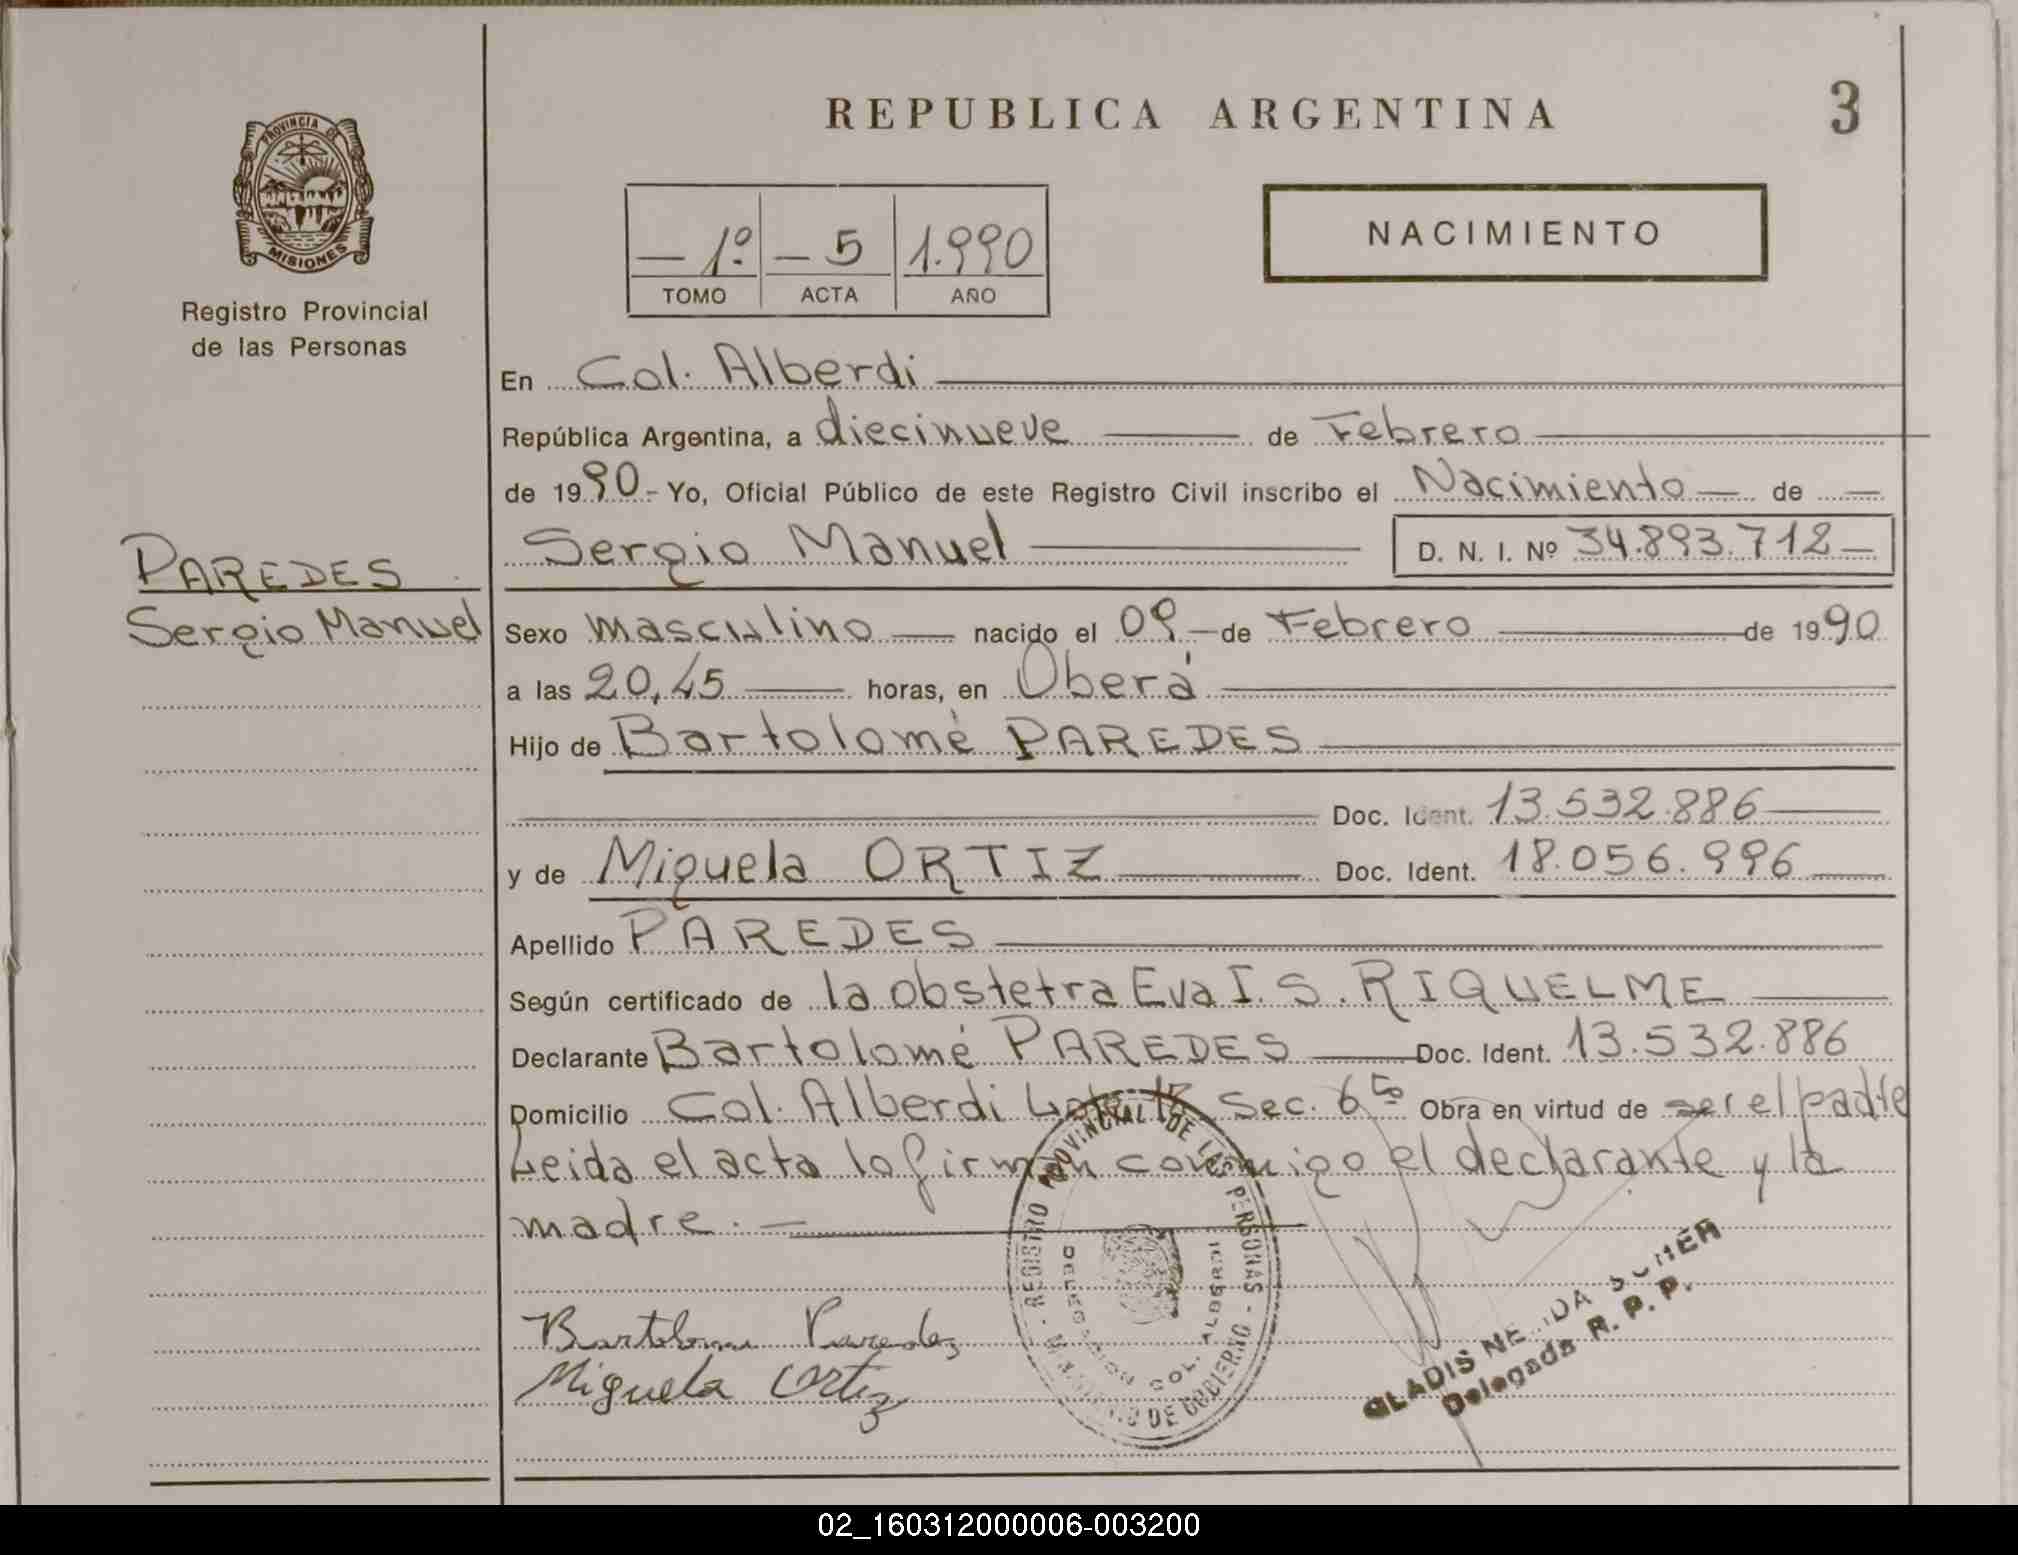 REPUBLICA ARGENTINA
3
PROVINCIA DE
MISIONES
Registro Provincial
de las Personas
— 1º — 5 1.990
TOMO ACTA AÑO
NACIMIENTO
En Col. Alberdi
República Argentina, a diecinueve de Febrero
de 1990- Yo, Oficial Público de este Registro Civil inscribo el Nacimiento de
Sergio Manuel D. N. I. Nº 34.893.712
PAREDES
Sergio Manuel
Sexo masculino nacido el 09 de Febrero de 1990
a las 20,45 horas, en Oberá
Hijo de Bartolomé PAREDES
Doc. Ident. 13.532.886
y de Miguela ORTIZ Doc. Ident. 18.056.996
Apellido PAREDES
Según certificado de la obstetra Eva I. S. RIQUELME
Declarante Bartolomé PAREDES Doc. Ident. 13.532.886
Domicilio Col. Alberdi Lote Sec. 6ta Obra en virtud de ser el padre
Leida el acta la firman conmigo el declarante y la
madre. —
Bartolome Paredes
Miguela Ortiz
REGISTRO PROVINCIAL DE LAS PERSONAS - DE GOBIERNO
DELEGACION COL. ALBERDI
GLADIS
Delegada R. P. P.
02_160312000006-003200